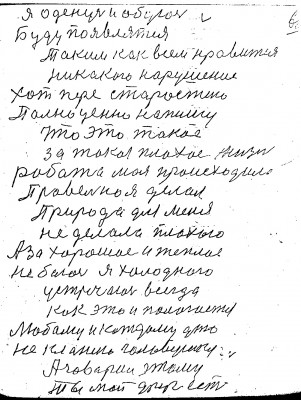 я оденусь и обуюсь
Буду появлятся
Таким как всем нравится
никакого нарушение
Хот пере старостию
Полноценно напишу
Что это такое
За такая плохое жизн
робота моя происходила
Правельноя делал
Природа для меня
не делала плохого
А за хорошое и теплое
не боюся я холодного
устречаю всегда
как это и пологается
Любому и каждому это
не кланяю головушку
А говарю этому
Ты мой друг ест